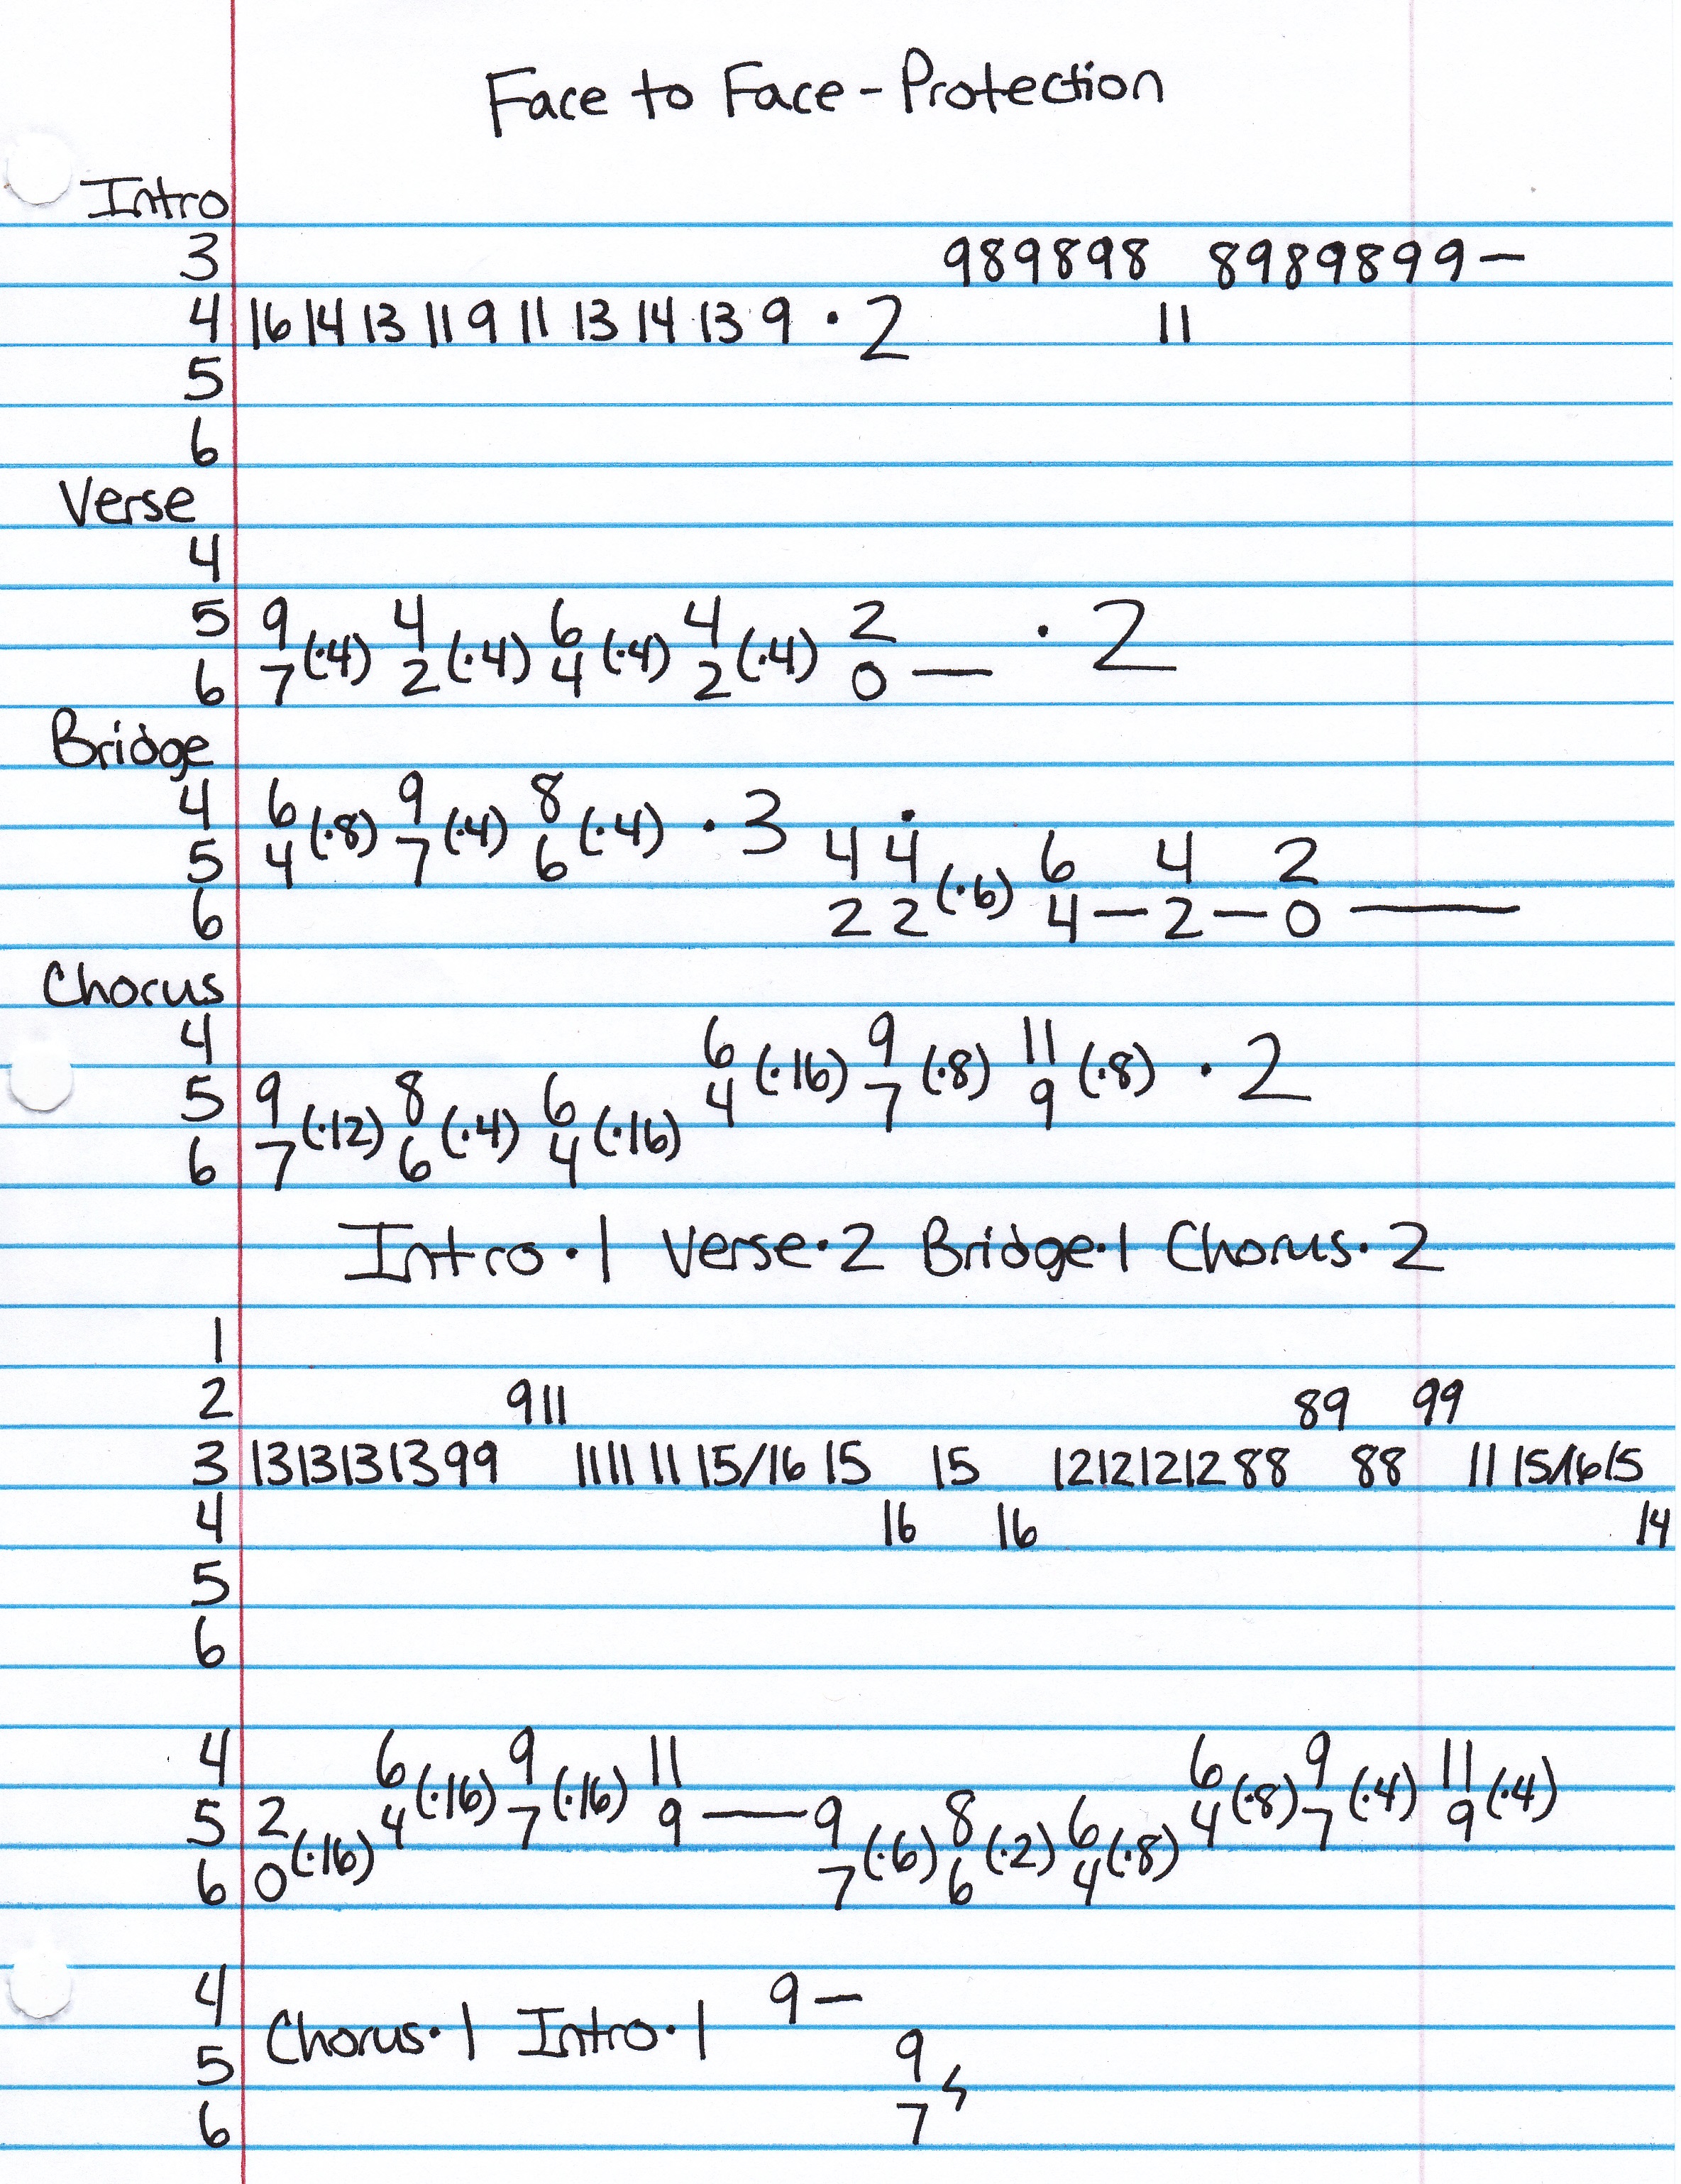 Face to Face - Protection
Intro
3 989898 8989899 —
4 16 14 13 11 9 11 13 14 13 9 · 2 11
5
6
Verse
4
5 9 4 6 4 2
(·4) (·4) (·4) (·4) · 2
6 7 2 4 2 0 —
Bridge
4 6 9 8
(·8) (·4) (·4) · 3
5 4 7 6 4 4 6 4 2
(·6)
6 2 2 4 — 2 — 0 —
Chorus
4 6 9 11
(·16) (·8) (·8) · 2
5 9 8 6 4 7 9
(·12) (·4) (·16)
6 7 6 4
Intro · 1 Verse · 2 Bridge · 1 Chorus · 2
1
2 9 11 89 99
3 13 13 13 13 9 9 11 11 11 15/16 15 15 12 12 12 12 88 88 11 15/16 15
4 16 16 14
5
6
4 6 9 11 6 9 11
(·16) (·16) (·8) (·4) (·4)
5 2 4 7 9 — 9 8 6 4 7 9
(·16) (·6) (·2) (·8)
6 0 7 6 4
4 9 —
Chorus · 1 Intro · 1
5 9
6 7